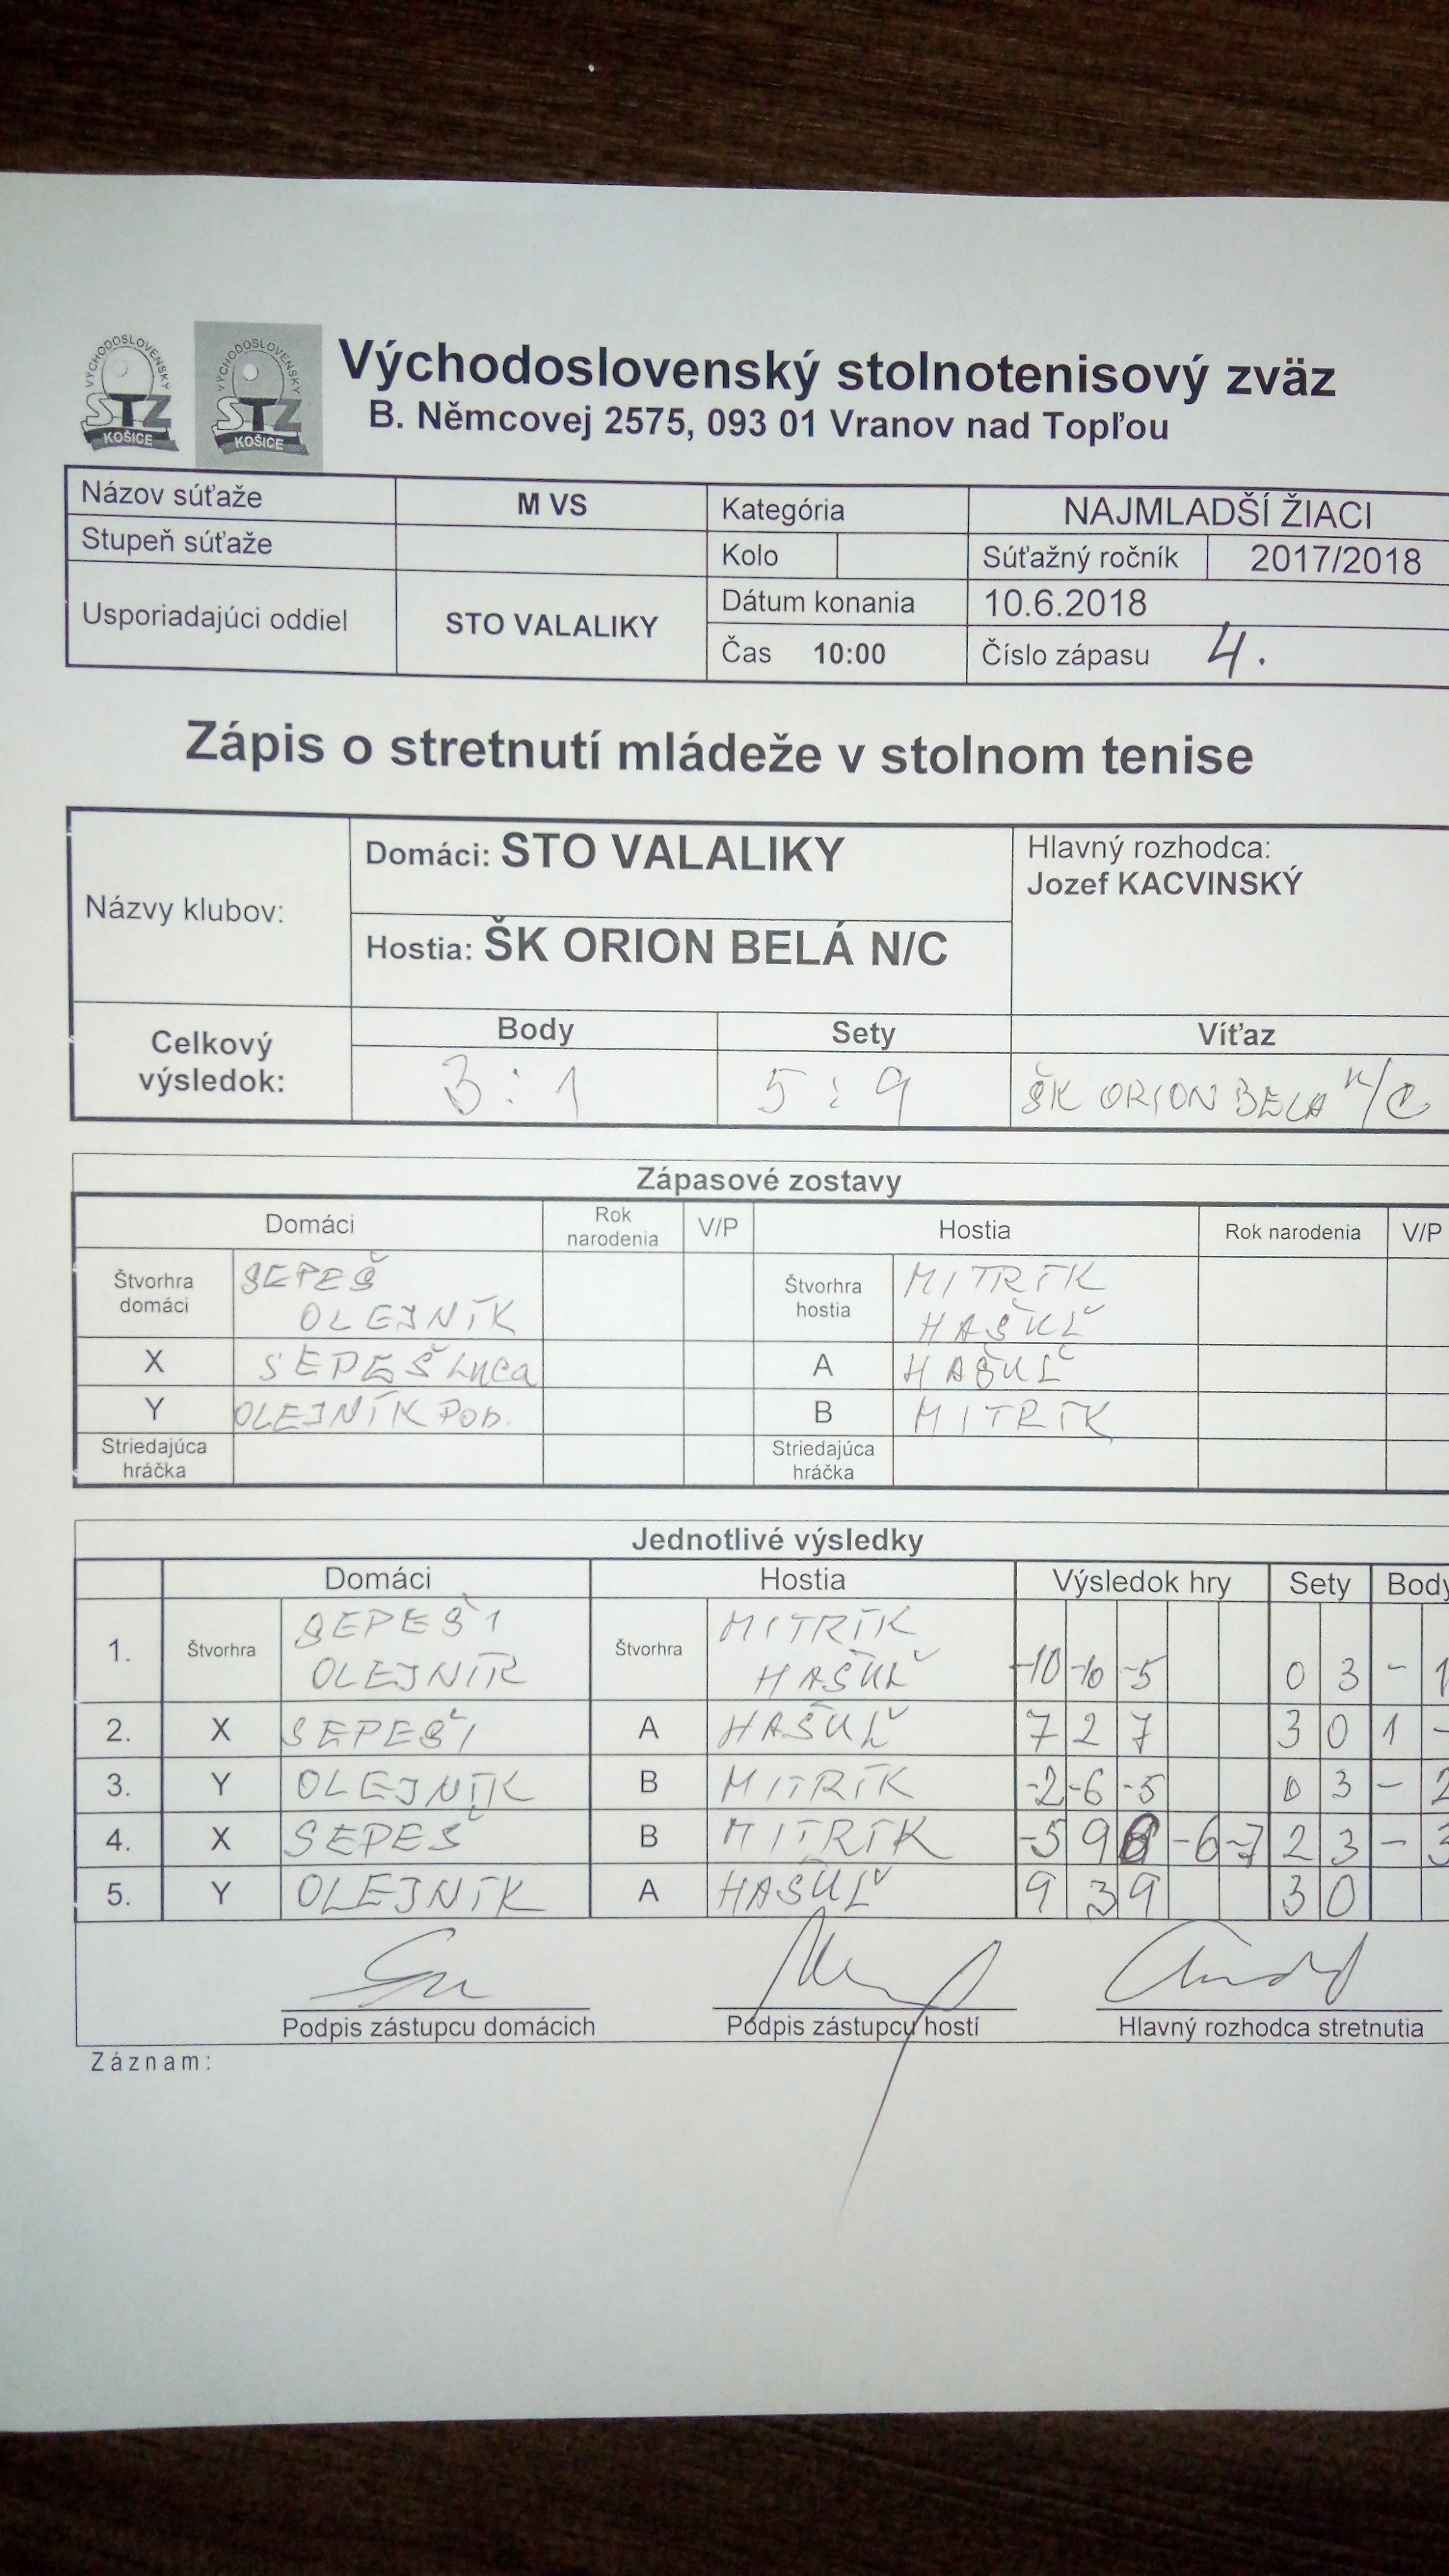 VÝCHODOSLOVENSKÝ STZ KOŠICE
VÝCHODOSLOVENSKÝ STZ KOŠICE
Východoslovenský stolnotenisový zväz
B. Němcovej 2575, 093 01 Vranov nad Topľou
Názov súťaže M VS Kategória NAJMLADŠÍ ŽIACI
Stupeň súťaže Kolo Súťažný ročník 2017/2018
Usporiadajúci oddiel STO VALALIKY Dátum konania 10.6.2018
Čas 10:00 Číslo zápasu 4.
Zápis o stretnutí mládeže v stolnom tenise
Názvy klubov: Domáci: STO VALALIKY Hlavný rozhodca:
Jozef KACVINSKÝ
Hostia: ŠK ORION BELÁ N/C
Celkový výsledok: Body Sety Víťaz
3 : 1 5 : 9 ŠK ORION BELA N/C
Zápasové zostavy
Domáci Rok narodenia V/P Hostia Rok narodenia V/P
Štvorhra domáci SEPEŠ Štvorhra hostia MITRÍK
OLEJNÍK HAŠUĽ
X SEPEŠ Luca A HAŠUĽ
Y OLEJNÍK Pob. B MITRÍK
Striedajúca hráčka Striedajúca hráčka
Jednotlivé výsledky
Domáci Hostia Výsledok hry Sety Body
1. Štvorhra SEPEŠI Štvorhra MITRÍK
OLEJNÍK HAŠUĽ -10 -10 -5 0 3 - 1
2. X SEPEŠI A HAŠUĽ 7 2 7 3 0 1 -
3. Y OLEJNÍK B MITRÍK -2 -6 -5 0 3 - 2
4. X SEPEŠ B MITRÍK -5 9 8 -6 -7 2 3 - 3
5. Y OLEJNÍK A HAŠUĽ 9 3 9 3 0
Podpis zástupcu domácich Podpis zástupcu hostí Hlavný rozhodca stretnutia
Záznam: